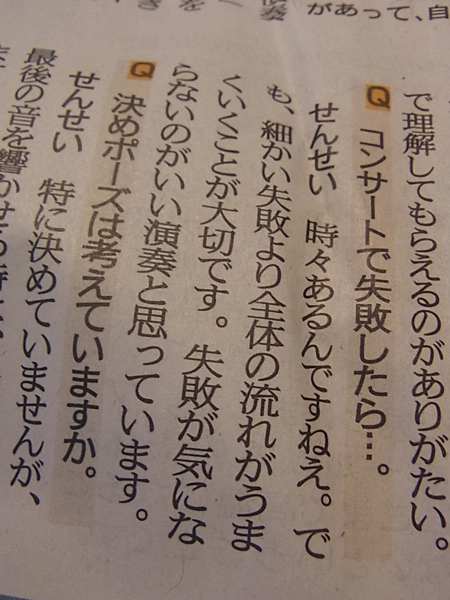 があって、自
で理解してもらえるのがありがたい。
Q コンサートで失敗したら…。
せんせい 時々あるんですねえ。で
も、細かい失敗より全体の流れがうま
くいくことが大切です。失敗が気にな
らないのがいい演奏と思っています。
Q 決めポーズは考えていますか。
せんせい 特に決めていませんが、
最後の音を響かせる時に